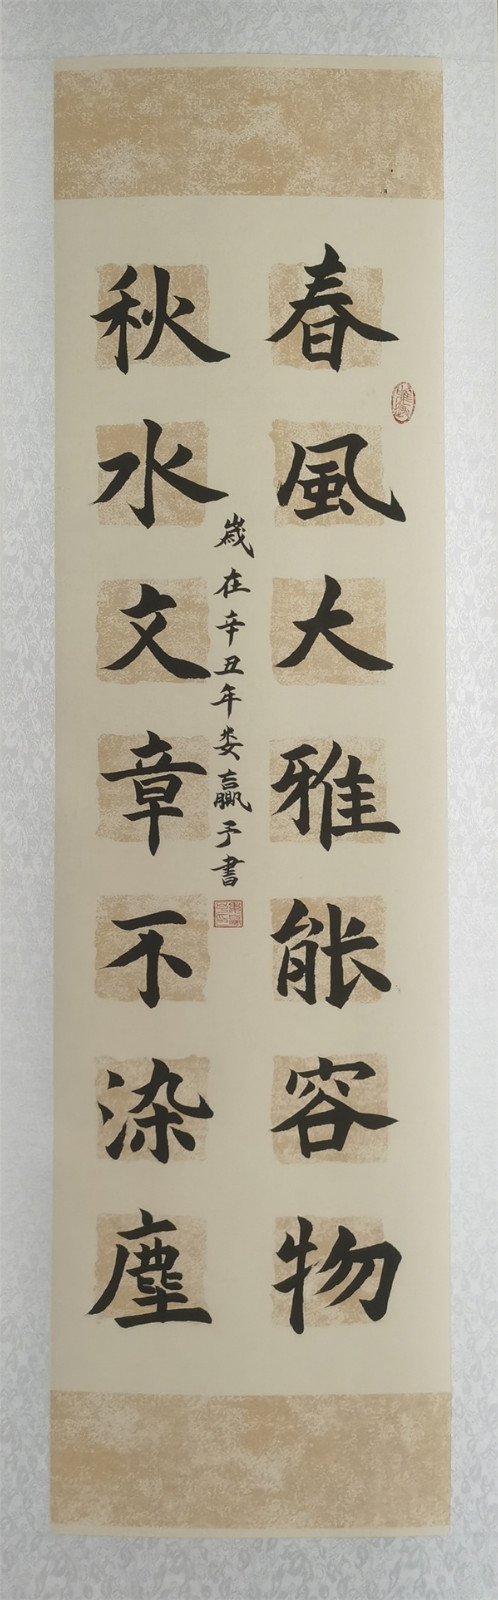 春風大雅能容物
秋水文章不染塵
歲在辛丑年婁贏予書